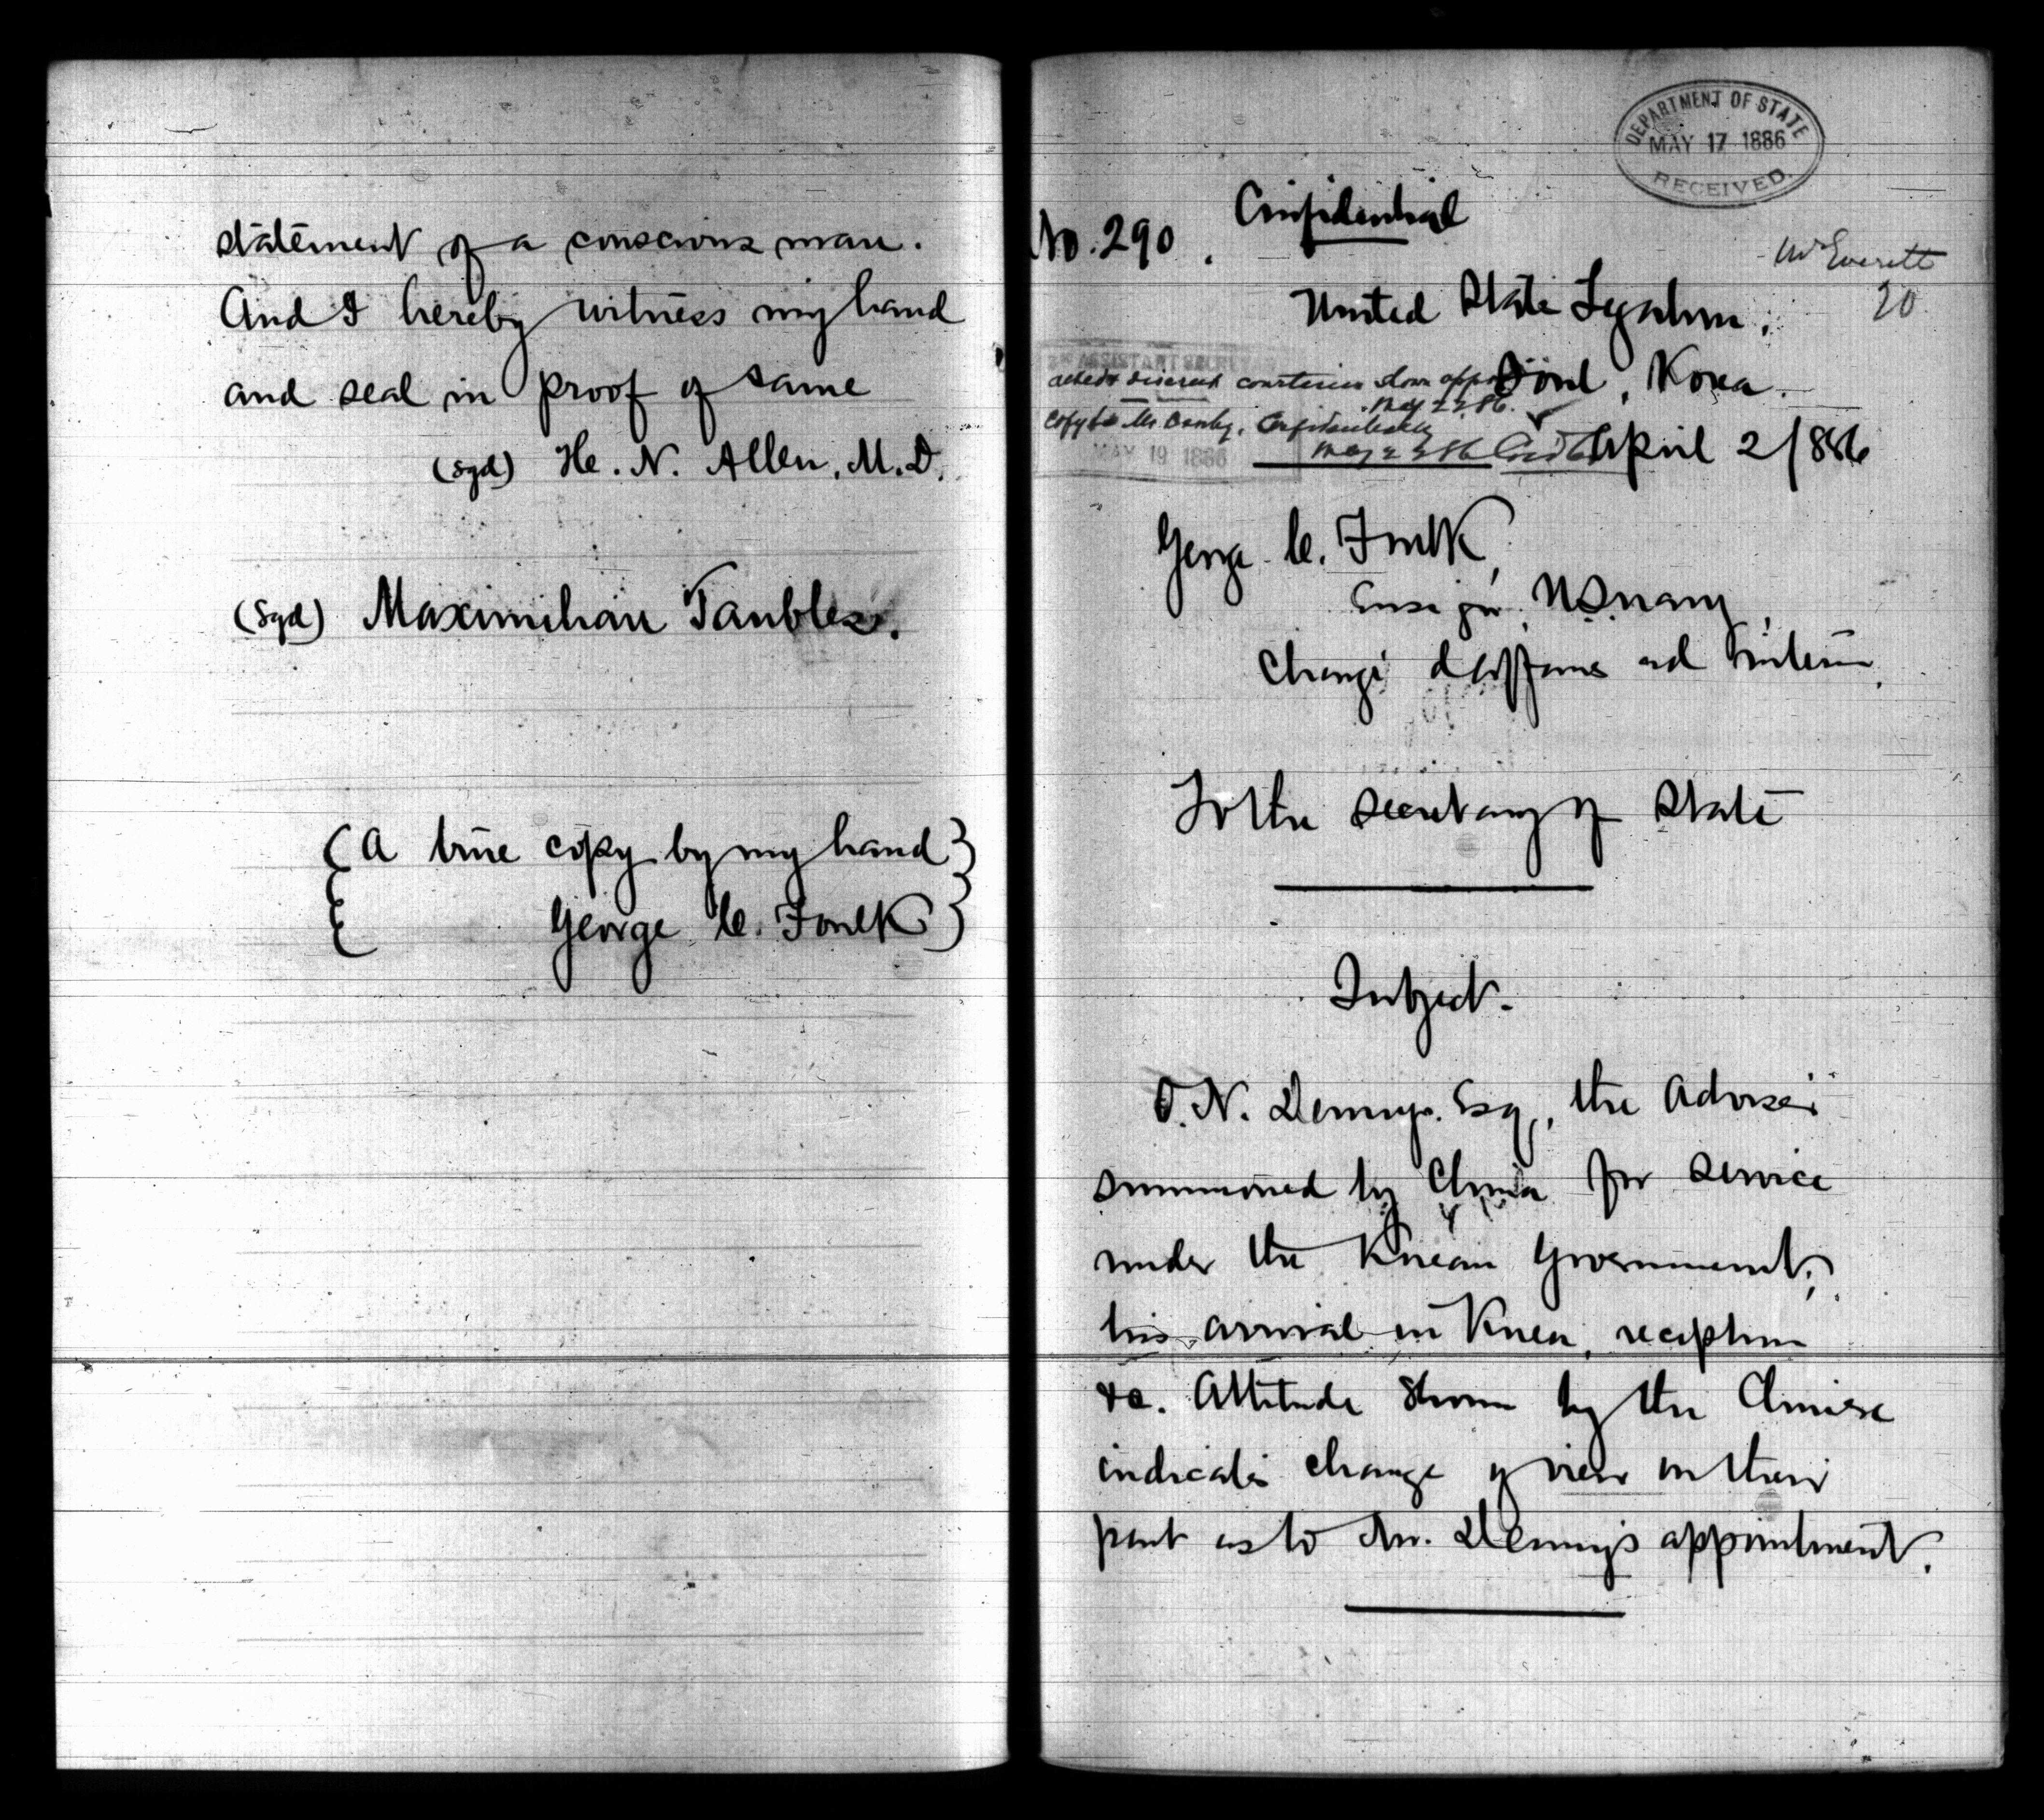 statement of a conscious man.
And I hereby witness my hand
and seal in proof of same
(sgd) H. N. Allen, M.D.
(Sgd) Maximilian Taubles.
{A true copy by my hand}
{George C. Foulk}
DEPARTMENT OF STATE
MAY 17 1886
RECEIVED.
Confidential
No. 290.
Mr Everett
20
United State Legation,
ASSISTANT SECRETARY
Söul, Korea.
May 22 86.
copy to Mr Denby, Confidentially
MAY 19 1886
May 22 86
April 2/886
George C. Foulk,
Ensign, USNavy,
Chargé d'affaires ad interim,
To the Secretary of State
Subject.
O. N. Denny. Esq., the Adviser
summoned by China for service
under the Korean Government;
his arrival in Korea, reception
&c. Attitude shown by the Chinese
indicates change of view on their
part as to Mr. Denny's appointment.